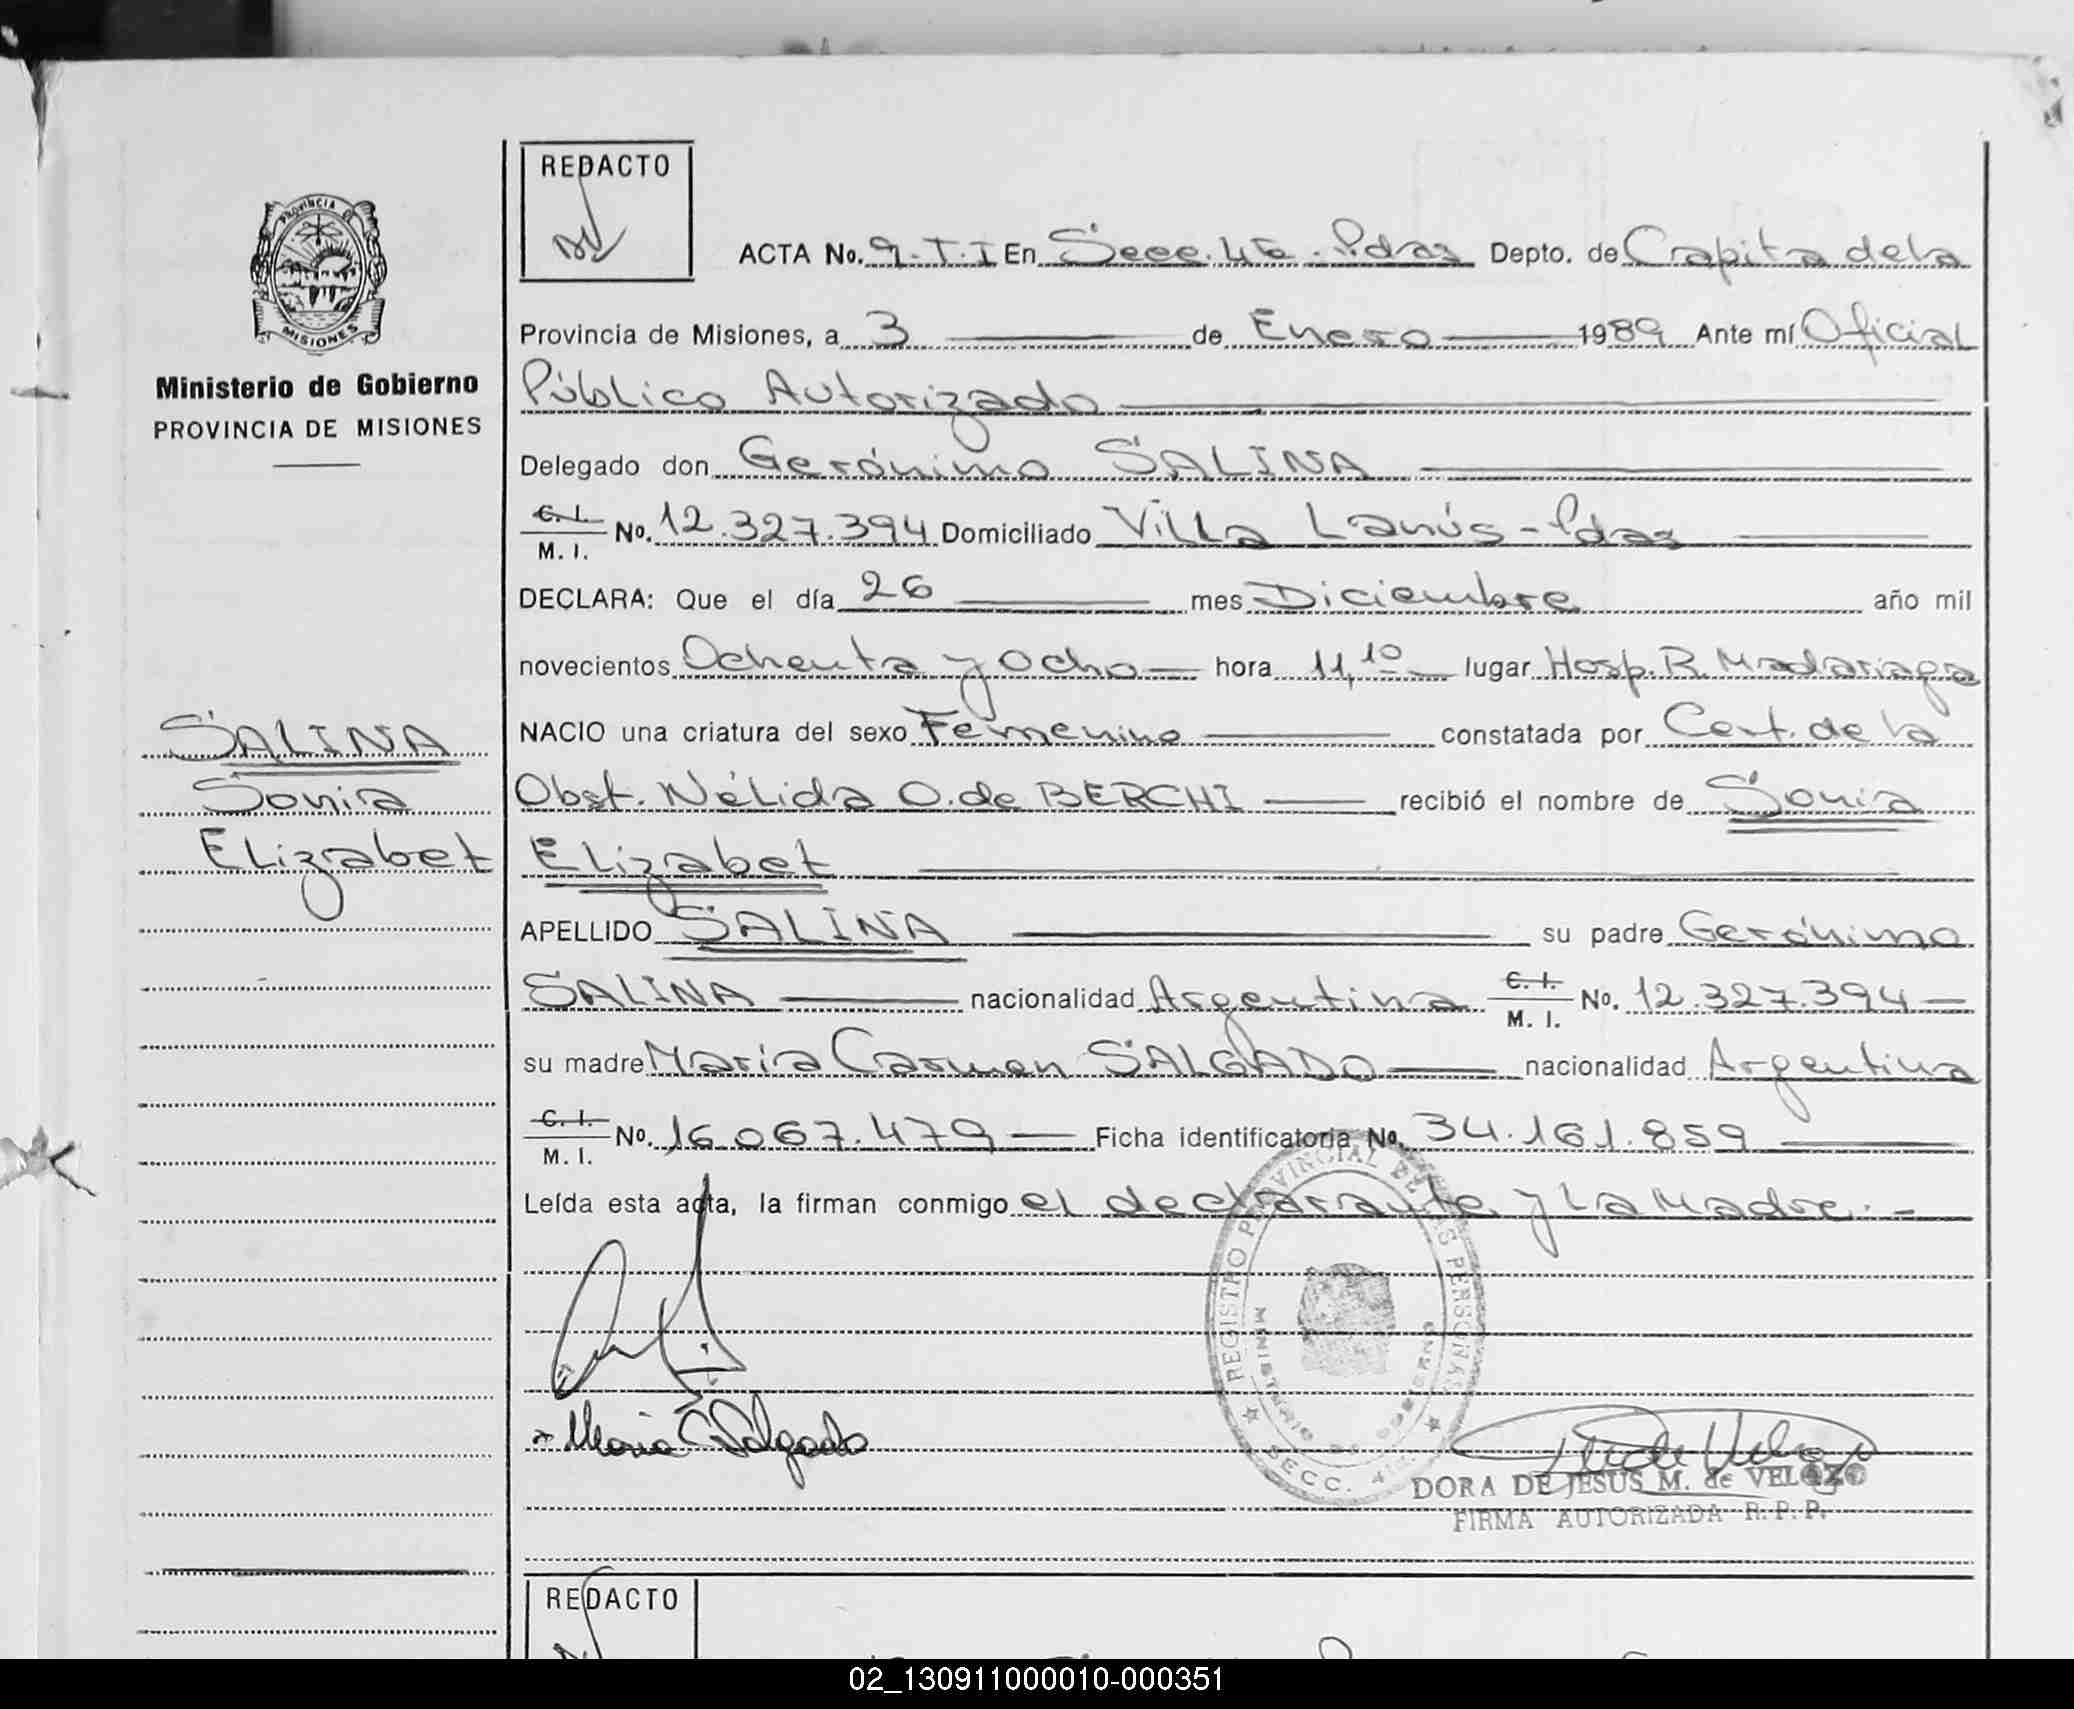 REDACTO
PROVINCIA DE
MISIONES
Ministerio de Gobierno
PROVINCIA DE MISIONES
ACTA No. 9-T.I En Secc. 4ta - Pdas Depto. de Capita dela
Provincia de Misiones, a 3 de Enero 1989 Ante mí Oficial
Público Autorizado
Delegado don Gerónimo SALINA
C. I. / M. I. No. 12.327.394 Domiciliado Villa Lanús - Pdas
DECLARA: Que el día 26 mes Diciembre año mil
novecientos Ochenta y Ocho hora 11,10 lugar Hosp. R. Madariaga
SALINA
NACIO una criatura del sexo Femenino constatada por Cert. de la
Sonia
Obst. Nélida O. de BERCHI recibió el nombre de Sonia
Elizabet
Elizabet
APELLIDO SALINA su padre Gerónimo
SALINA nacionalidad Argentina C. I. / M. I. No. 12.327.394
su madre María Carmen SALGADO nacionalidad Argentina
C. I. / M. I. No. 16.067.479 Ficha identificatoria No. 34.161.859
Leída esta acta, la firman conmigo el declarante y la Madre.-
REGISTRO PROVINCIAL DE LAS PERSONAS
MINISTERIO DE GOBIERNO
SECC. 4ta.
Maria C Salgado
DORA DE JESUS M. de VELOZO
FIRMA AUTORIZADA R. P. P.
REDACTO
02_130911000010-000351